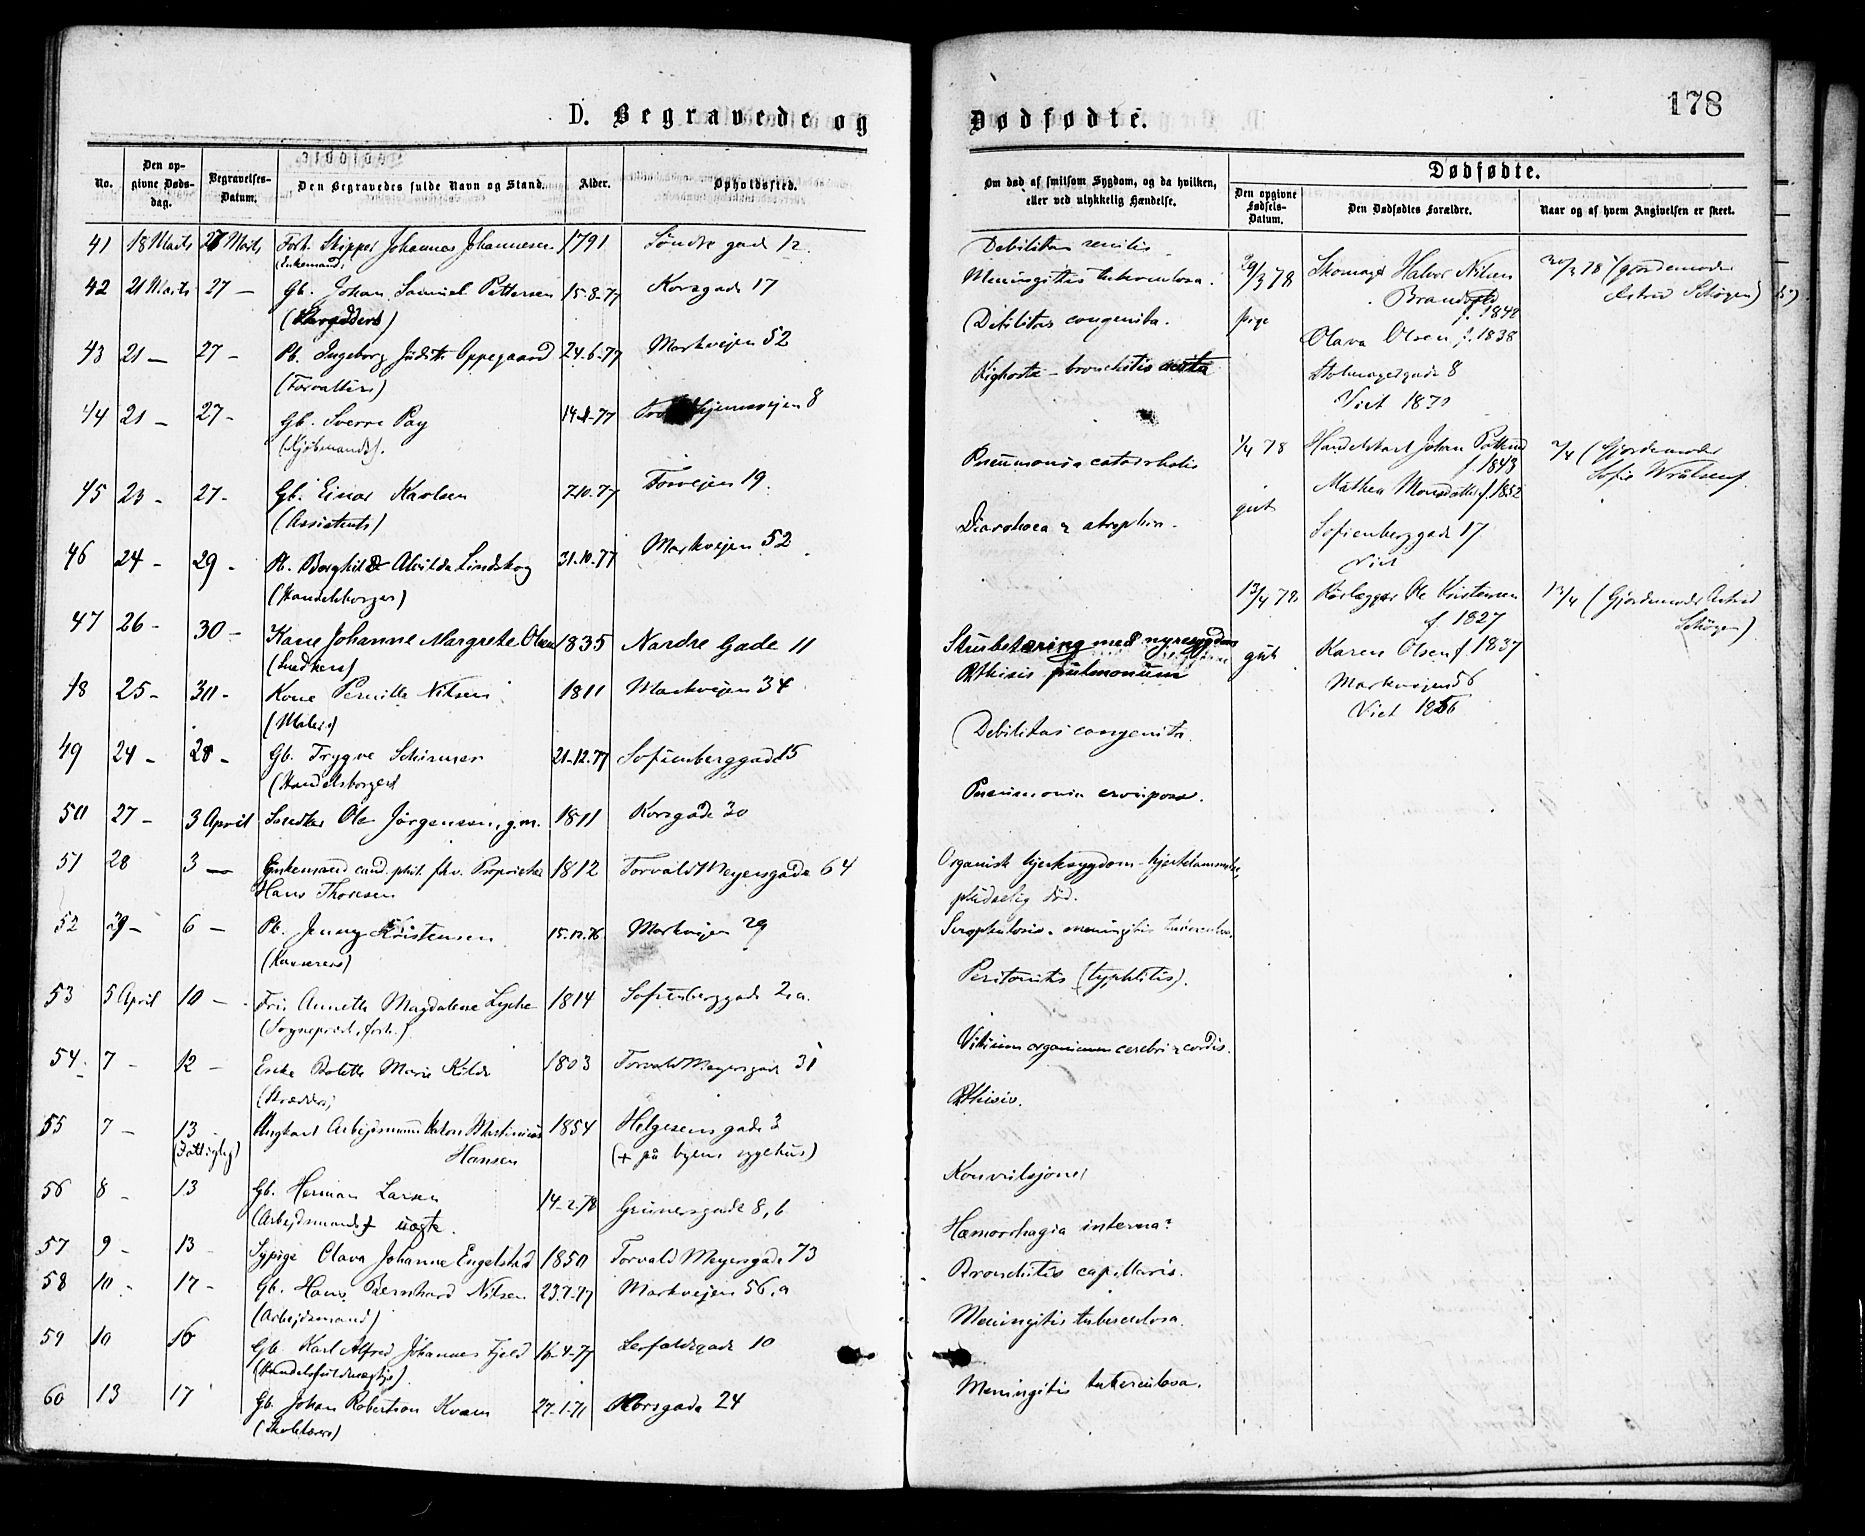 178
D. Begravede og Dødfødte.
No.
Den opgivne Dødsdag.
Begravelses-Datum.
Den Begravedes fulde Navn og Stand.
Alder.
Opholdssted.
Om død af smitsom Sygdom, og da hvilken, eller ved ulykkelig Hændelse.
Dødfødte.
Den opgivne Fødsels-Datum.
Den Dødfødtes Forældre.
Naar og af hvem Angivelsen er skeet.
41 18 Marts 27 Marts Forh. Skipper Johannes Johannesen 1791 Søndre gade 12 Debilitas senilis
(Enkemand)
42 21 Marts 27 — Gb. Johan Samuel Pettersen 15-8-77 Korsgade 17 Meningitis tuberculosa.
43 21 — 27 - Pb. Ingeborg Judith Oppegaard 24-6-77 Markvejen 52 Debilitas congenita.
(Forvalters)
44 21 — 27 - Gb. Sverre Pay 77 8 Kighoste - bronchitis
(Kjøbmands).
45 23 - 27 - Gb. Einar Karlsen 7-10-77 Torvejen 19 Pneumonia catarrhalis
(Assistents)
46 24 - 29 - Pb. Borghild Alvilda Lindskog 31-10-77 Markvejen 52 Diarrhoea & atrophia.
(Handelsborger)
47 26 - 30 - Kone Johanne Margrete Olsen 1835 Nordre Gade 11 Strubetæring med nyresygdom
(Snedkers)
48 25 - 30 - Kone Pernille Nilsen 1811 Markvejen 34 Phthisis pulmonum
(Malers)
49 24 - 28 - Gb. Trygve Schirmer 21-12-77 Sofienberggade 15 Debilitas congenita.
(Handelsborger)
50 27 - 3 April Snedker Ole Jørgensen, g.m. 1811 Korsgade 30 Pneumonia crouposa.
51 28 3 — Enkemand cand. phil. fhv. Proprietær 1812 Torvald Meyersgade 64 Organisk hjertesygdom - hjertelammelse,
Hans Thoresen pludselig død.
52 29 - 6 — Pb. Jenny Kristensen 15-12-76 Markvejen 29 Scrophulosis. meningitis tuberculosa.
53 5 April 10 - Frk. Annette Magdalene Lyche 1814 Sofienberggade 2.a. Peritonitis (typhlitis).
(Sogneprest, forh.)
54 7 - 12 - Enke Bolette Marie Kilde 1803 Torvald Meyersgade 31 Vitium organicum cerebri & cordis.
(Skrædders)
55 7 - 13 - Ungkarl Arbejdsmand Anton Martinius 1854 Helgesens gade 3 Phthisis.
(Fattiglig) Hansen (+ på byens sygehus)
56 8 - 13 Gb. Herman Larsen 14-2-78 Grünersgade 8, b Konvulsjoner
(Arbejdsmands) uægte.
57 9 - 13 Sypige Olava Johanne Engelstad 1850 Torvald Meyersgade 73 Hæmorrhagia interna?
58 10 - 17 - Gb. Hans Bernhard Nilsen 23-7-77 Markvejen 56, a Bronchitis capillaris.
(Arbejdsmand)
59 10 16 Gb. Karl Alfred Johannes Fjeld 16-4-77 Lerfaldsgade 10 Meningitis tuberculosa.
(Handelsfuldmægtigs).
60 13 17 Gb. Johan Robertson Kvam 27-1-71 Korsgade 24 Meningitis tuberculosa.
(Skolelærers)
29/3 78 Skomager Halvor Nilsen 30/3 78 (gjordemoder
Astrid Schøgen)
f. 1842
pige Olava Olsen f. 1838
8
Viet 1871
1/4 78 Handelskarl Johan 2/4 (Gjordemoder
f. 1843 Sofie
gut Mathea f. 1852
Sofienberggade 17
Viet
13/4 78 Rørlægger Ole Kristensen 13/4 (Gjordemoder Astrid
f. 1827 Schøgen)
gut Karen Olsen f. 1837
Markvejen 56
Viet 1866